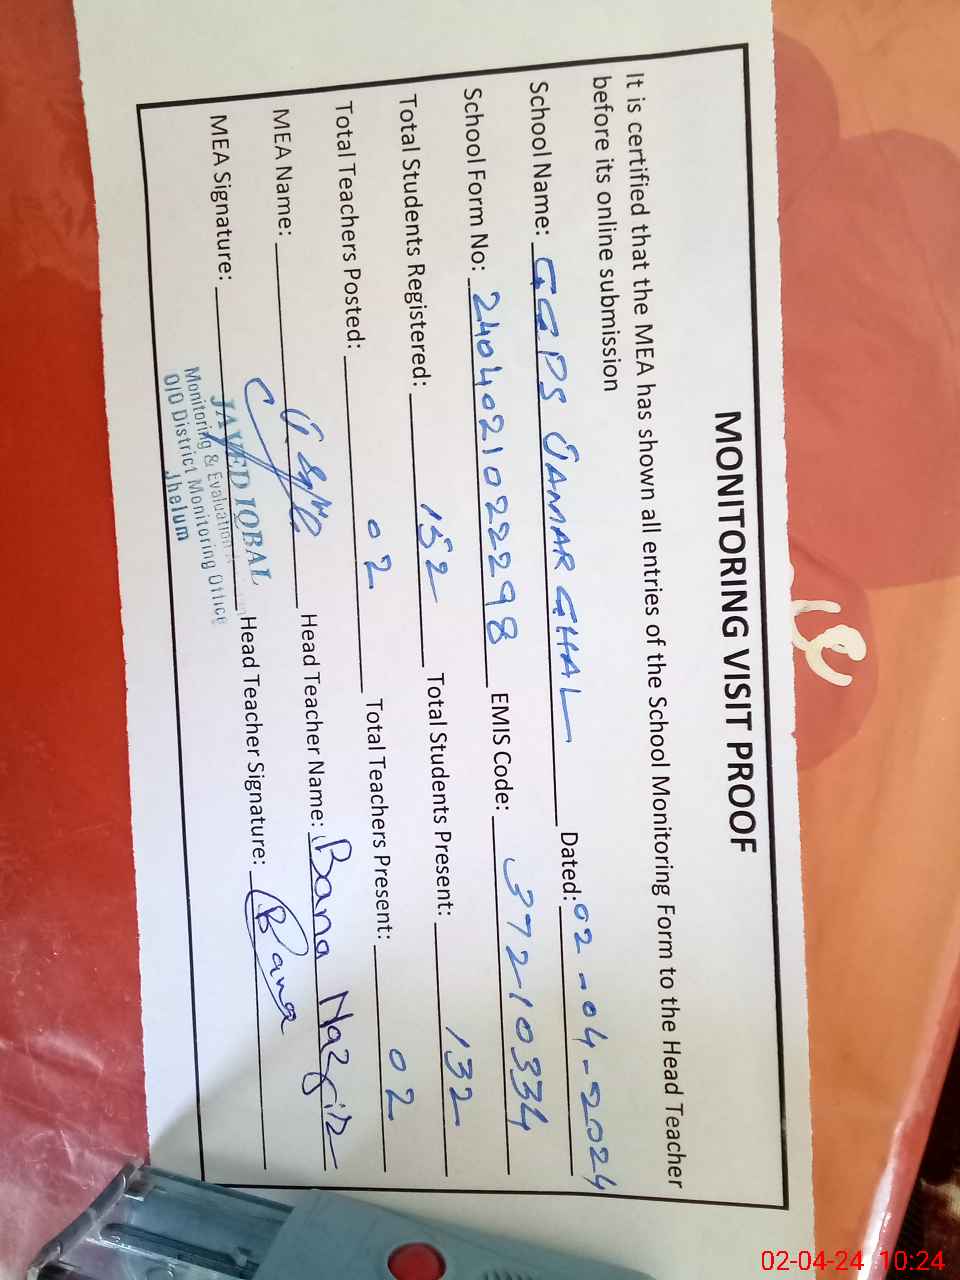 MONITORING VISIT PROOF
It is certified that the MEA has shown all entries of the School Monitoring Form to the Head Teacher
before its online submission
School Name: GGPS QAMAR GHAL Dated: 02-04-2024
School Form No: 240402102298 EMIS Code: 37210334
Total Students Registered: 152 Total Students Present: 132
Total Teachers Posted: 02 Total Teachers Present: 02
MEA Name: Head Teacher Name: Bana Nazir
MEA Signature: Head Teacher Signature: Bana
JAVED IQBAL
Monitoring & Evaluation
O/O District Monitoring Office
Jhelum
02-04-24 10:24